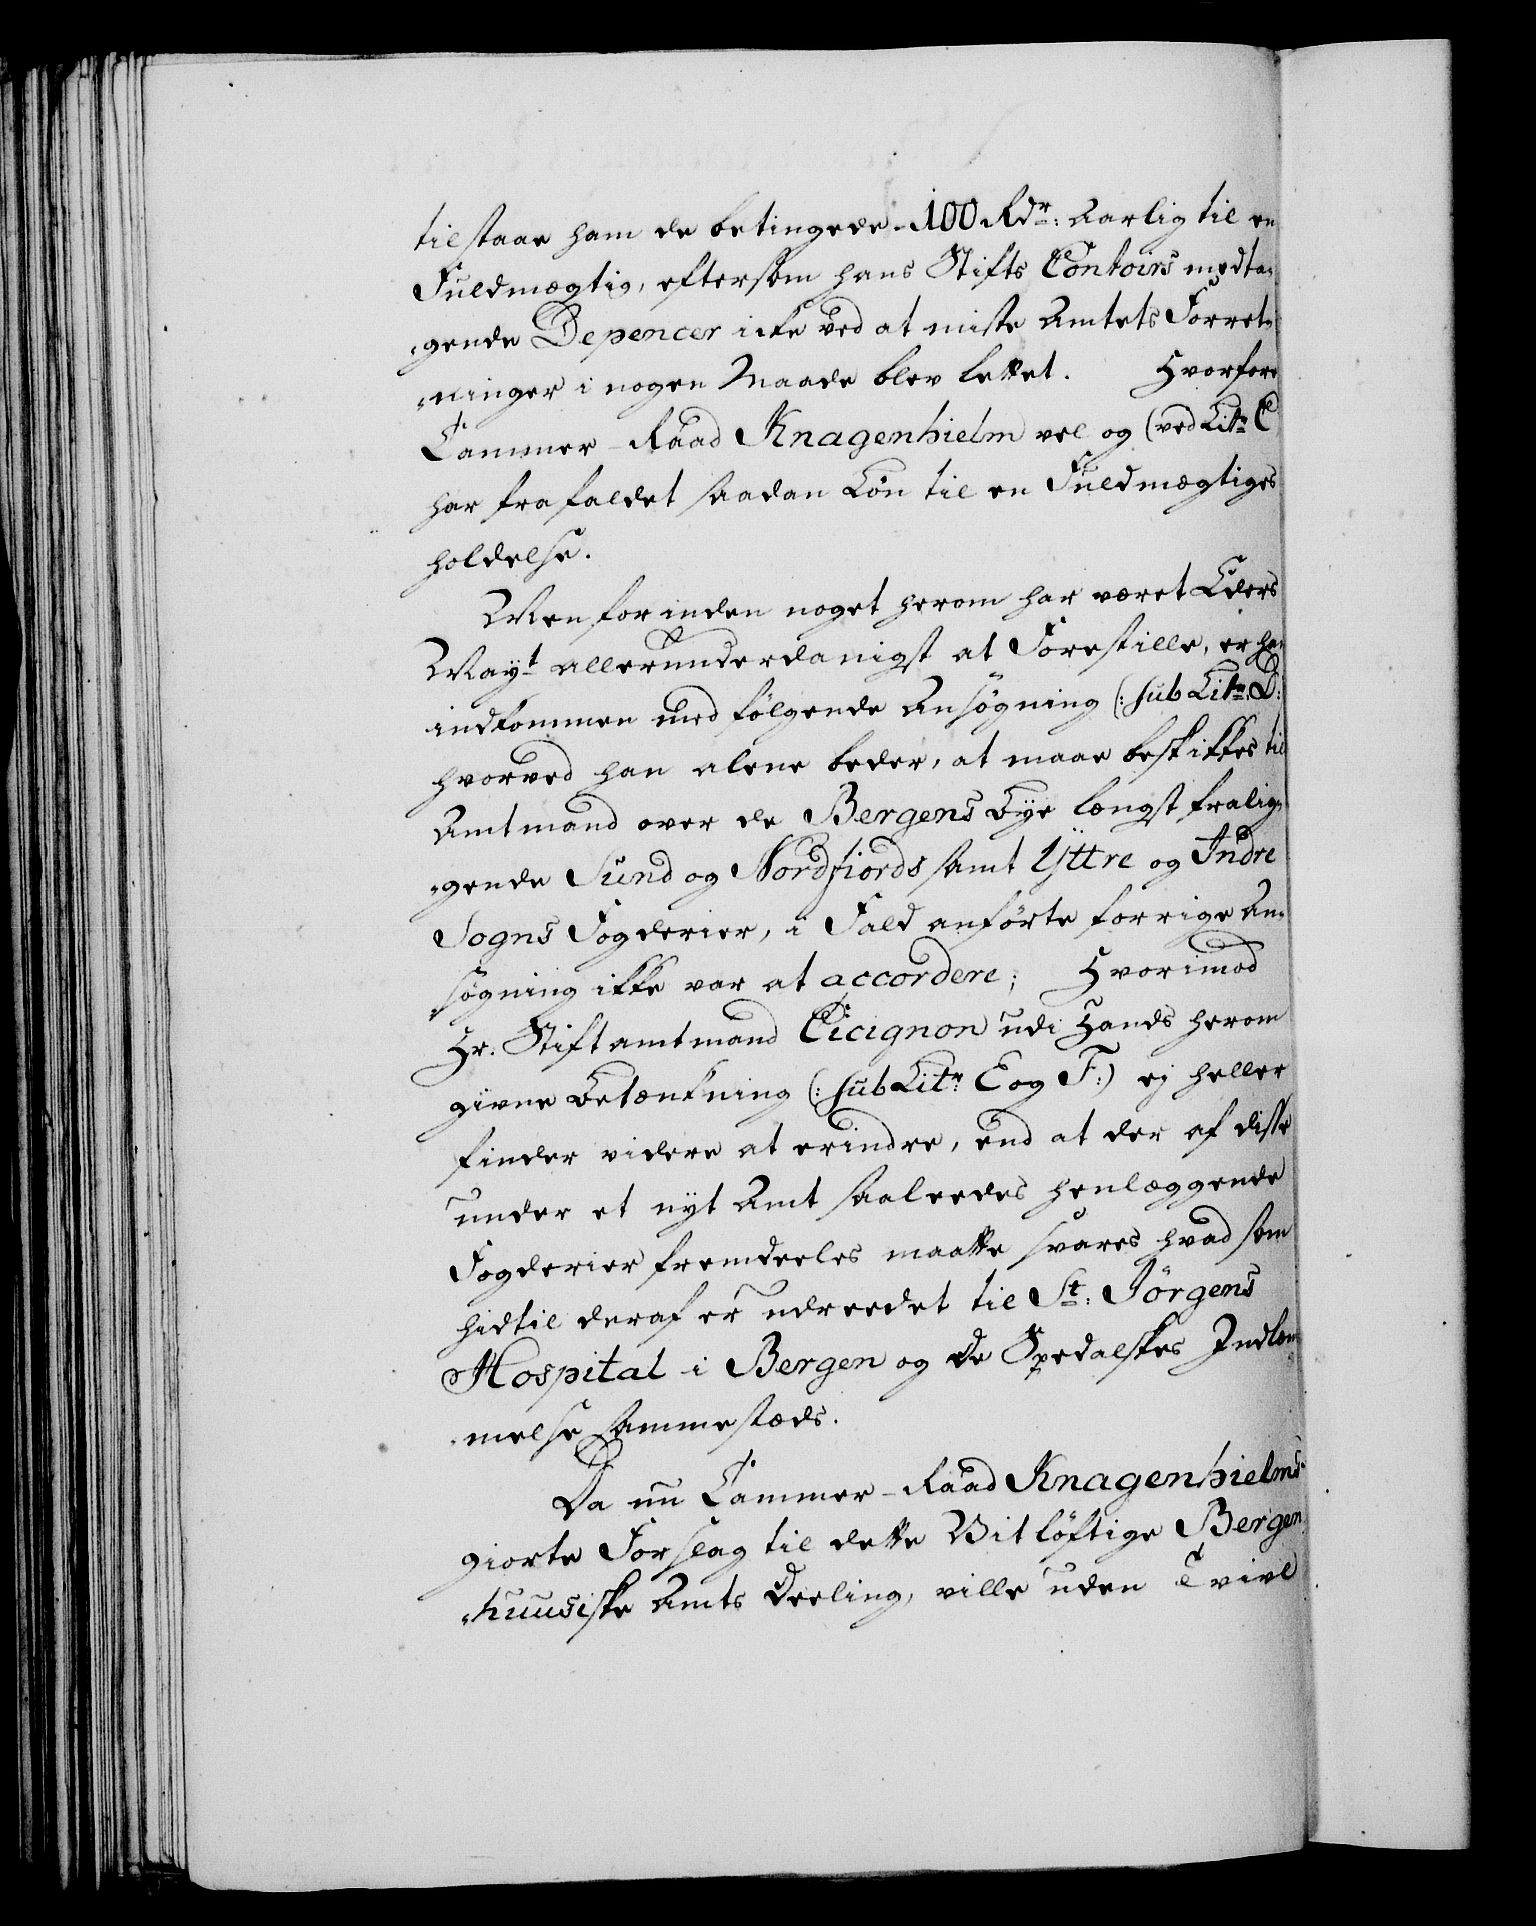 tilstaae ham de betingede 100 Rdr: Aarlig til en
Fuldmægtig, eftersom hans Stifts Contoirs medta-
-gende Depencer icke ved at miste Amtets Forret-
-ninger i nogen Maade blev lettet. Hvorfore
Cammer-Raad Knagenhielm vel og (ved Litr C
har frafaldet saadan Løn til en Fuldmægtiges
holdelse.
Men forinden noget herom har været Eders
Mayt allerunderdanigst at Forestille, er han
indkommen med følgende Ansøgning (: sub Litr. D:
hvorved han alene beder, at maae beskikkes til
Amtmand over de Bergens Bye længst fralig-
-gende Sund og Nordfiords samt Yttre og Indre
Sogns Fogderier, i Fald anførte forrige An-
søgning ikke var at accordere; Hvorimod
Hr. Stiftamtmand Cicignon udi Hands herom
givne Betænkning (: sub Litr E og F:) ej heller
finder videre at erindre, end at der af disse
under et nyt Amt saaleedes henlæggende
Fogderier fremdeeles maatte svares hvad som
hidtil deraf er udreedet til St: Jörgens
Hospital i Bergen og de Spedalskes Indlem-
-melse sammestæds.
Da nu Cammer-Raad Knagenhielms
giorte Forslag til dette Vitløftige Bergen
-huusiske Amts Deeling, ville uden Tvivl